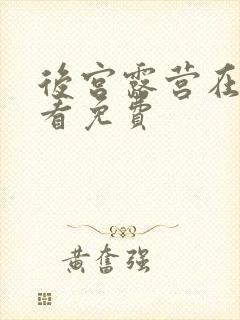 後宫露营在
看免費
黄奮强